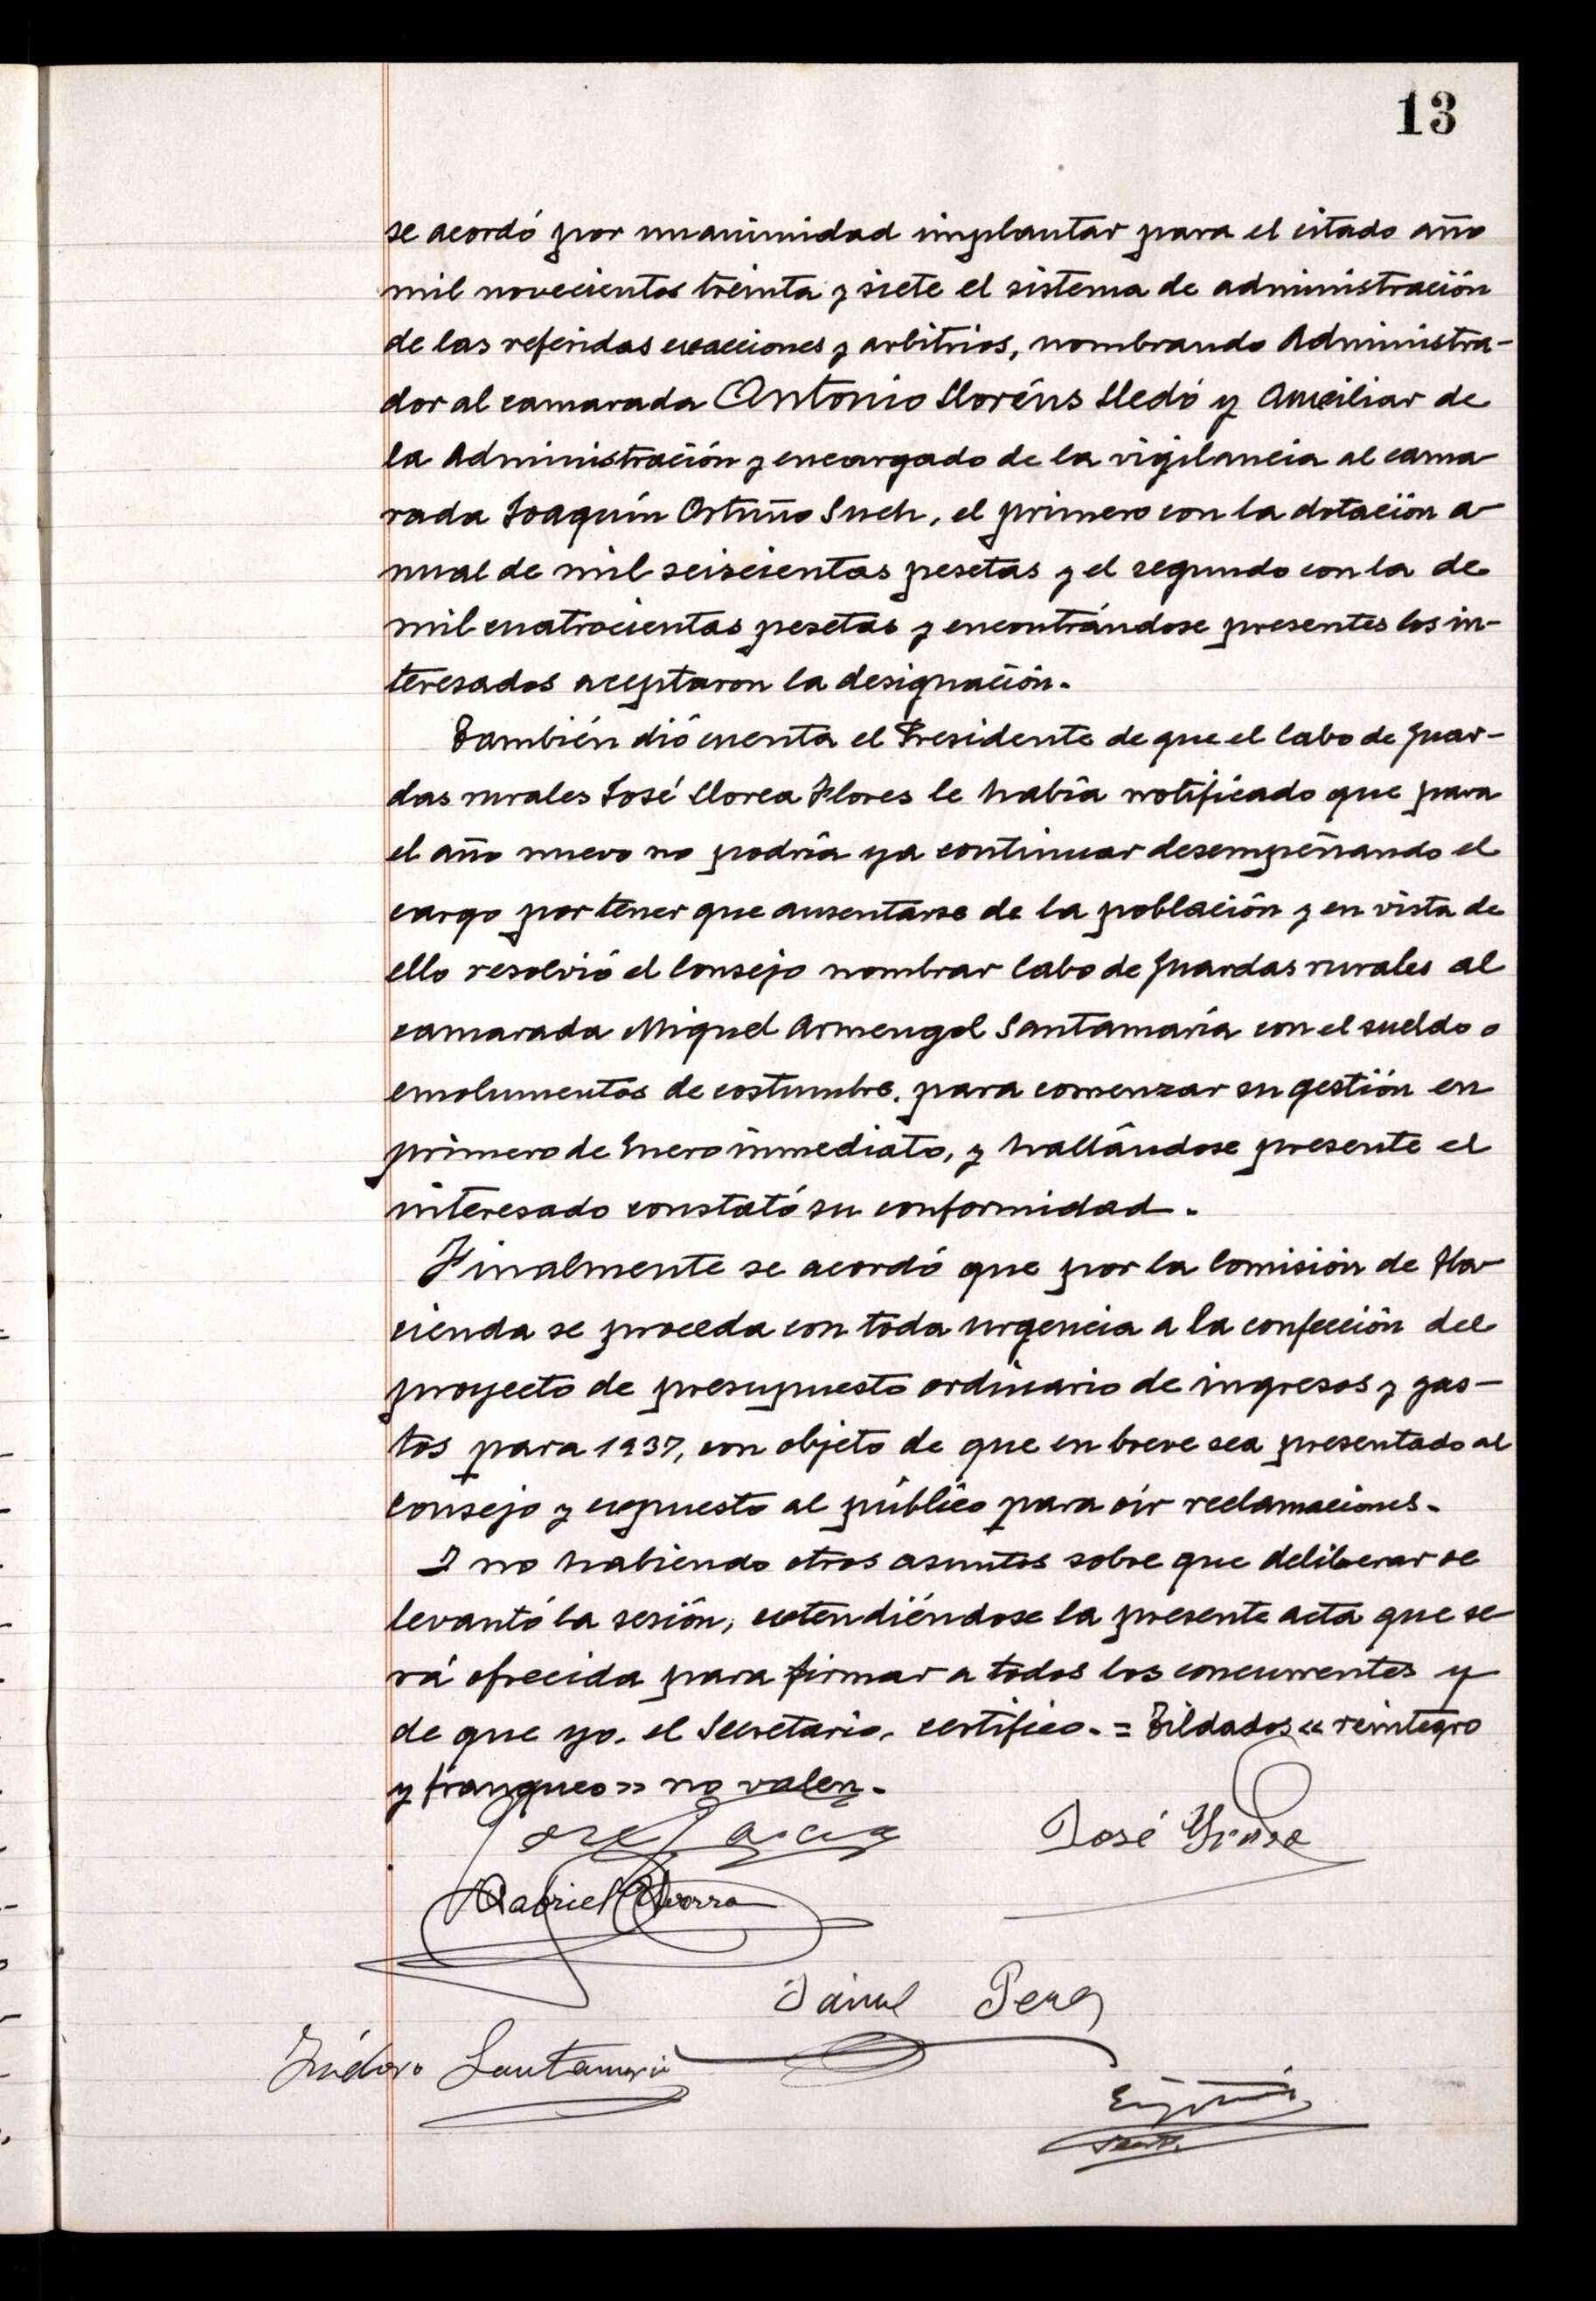 13
se acordó por unanimidad implantar para el citado año
mil novecientos treinta y siete el sistema de administración
de las referidas exacciones y arbitrios, nombrando Administra-
dor al camarada Antonio Lloréns Lledó y Auxiliar de
la Administración y encargado de la vigilancia al cama
rada Joaquín Ortuño Such, el primero con la dotación a
nual de mil seiscientas pesetas y el segundo con la de
mil cuatrocientas pesetas y encontrándose presentes los in-
teresados aceptaron la designación.
También dió cuenta el Presidente de que el Cabo de Guar-
das rurales José Llorca Flores le había notificado que para
el año nuevo no podría ya continuar desempeñando el
cargo por tener que ausentarse de la población y en vista de
ello resolvió el Consejo nombrar Cabo de Guardas rurales al
camarada Miguel Armengol Santamaría con el sueldo o
emolumentos de costumbre, para comenzar su gestión en
primero de Enero inmediato, y hallándose presente el
interesado constató su conformidad.
Finalmente se acordó que por la Comisión de Ha
cienda se proceda con toda urgencia a la confección del
proyecto de presupuesto ordinario de ingresos y gas-
tos para 1937, con objeto de que en breve sea presentado al
Consejo y expuesto al público para oir reclamaciones.
Y no habiendo otros asuntos sobre que deliberar se
levantó la sesión, extendiéndose la presente acta que se
rá ofrecida para firmar a todos los concurrentes y
de que yo, el Secretario, certifico. = Tildados « reintegro
y franqueo » no valen.
José
Gabriel
Isidoro Santamaría